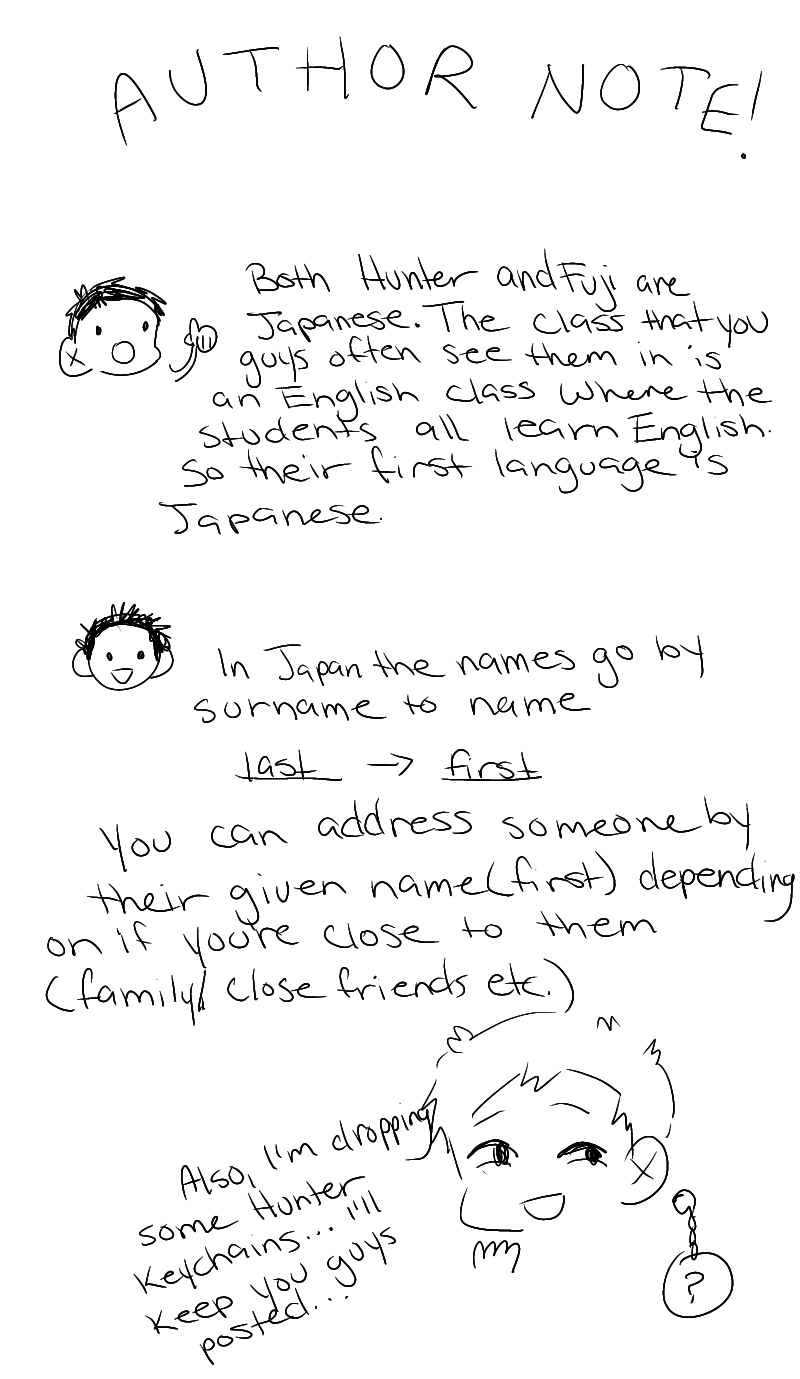 AUTHOR NOTE!
Both Hunter and Fuji are
Japanese. The class that you
guys often see them in is
an English class where the
students all learn English.
So their first language is
Japanese.
In Japan the names go by
surname to name
last → first
You can address someone by
their given name (first) depending
on if you're close to them
(family/ close friends etc.)
Also, I'm dropping
some Hunter
Keychains... I'll
Keep you guys
posted...
?